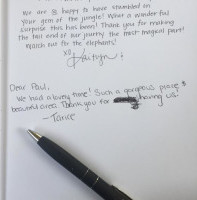 We are so happy to have stumbled on
your gem of the jungle! What a wonderful
surprise this has been! Thank you for making
the tail end of our journey the most magical part!
Watch out for the elephants!
xo
Kaitlyn +
Dear Paul,
We had a lovely time! Such a gorgeous place &
beautiful area. Thank you for having us!
-Janice